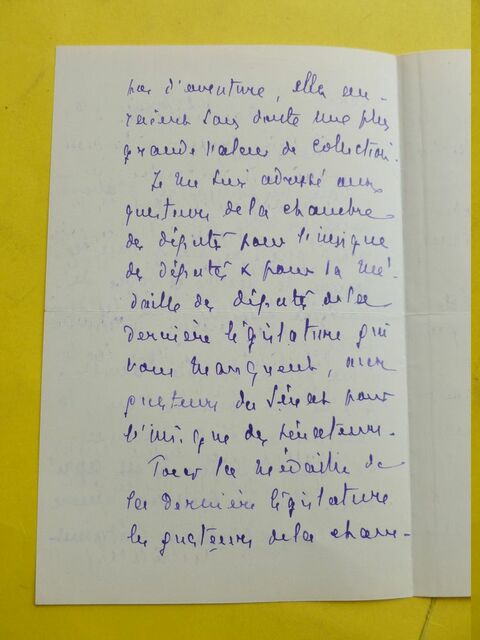 par d'aventure, elles au-
raient sans doute une plus
grande valeur de collection.
Je me suis adressé aux
questeurs de la chambre
des députés pour l'insigne
des députés & pour la mé-
daille de député de la
dernière législature qui
vous manquent, aux
questeurs du Sénat pour
l'insigne des sénateurs.
Pour la médaille de
la dernière législature
les questeurs de la cham-